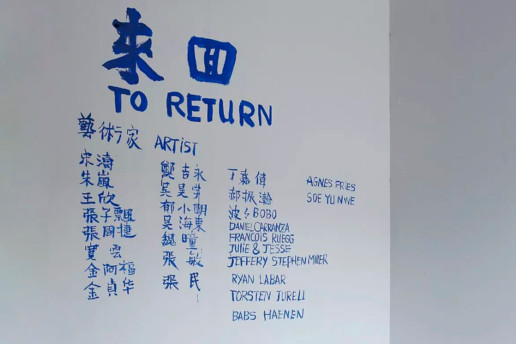 來回
TO RETURN
藝術家 ARTIST
宋濤
朱嵐
王欣
張子飄
張周捷
寶雲
金阿福
金貞华
鄭吉永
吴昊宇
郁小
吴海東
魏瞳
張敏
張民
丁嘉偉
郝振瀚
波々BOBO
DANIEL CARRANZA
FRANCOIS RUEGG
JULIE & JESSE
JEFFERY STEPHEN MILLER
RYAN LABAR
TORSTEN JURELL
BABS HAENEN
AGNES FRIES
SOE YU NWE